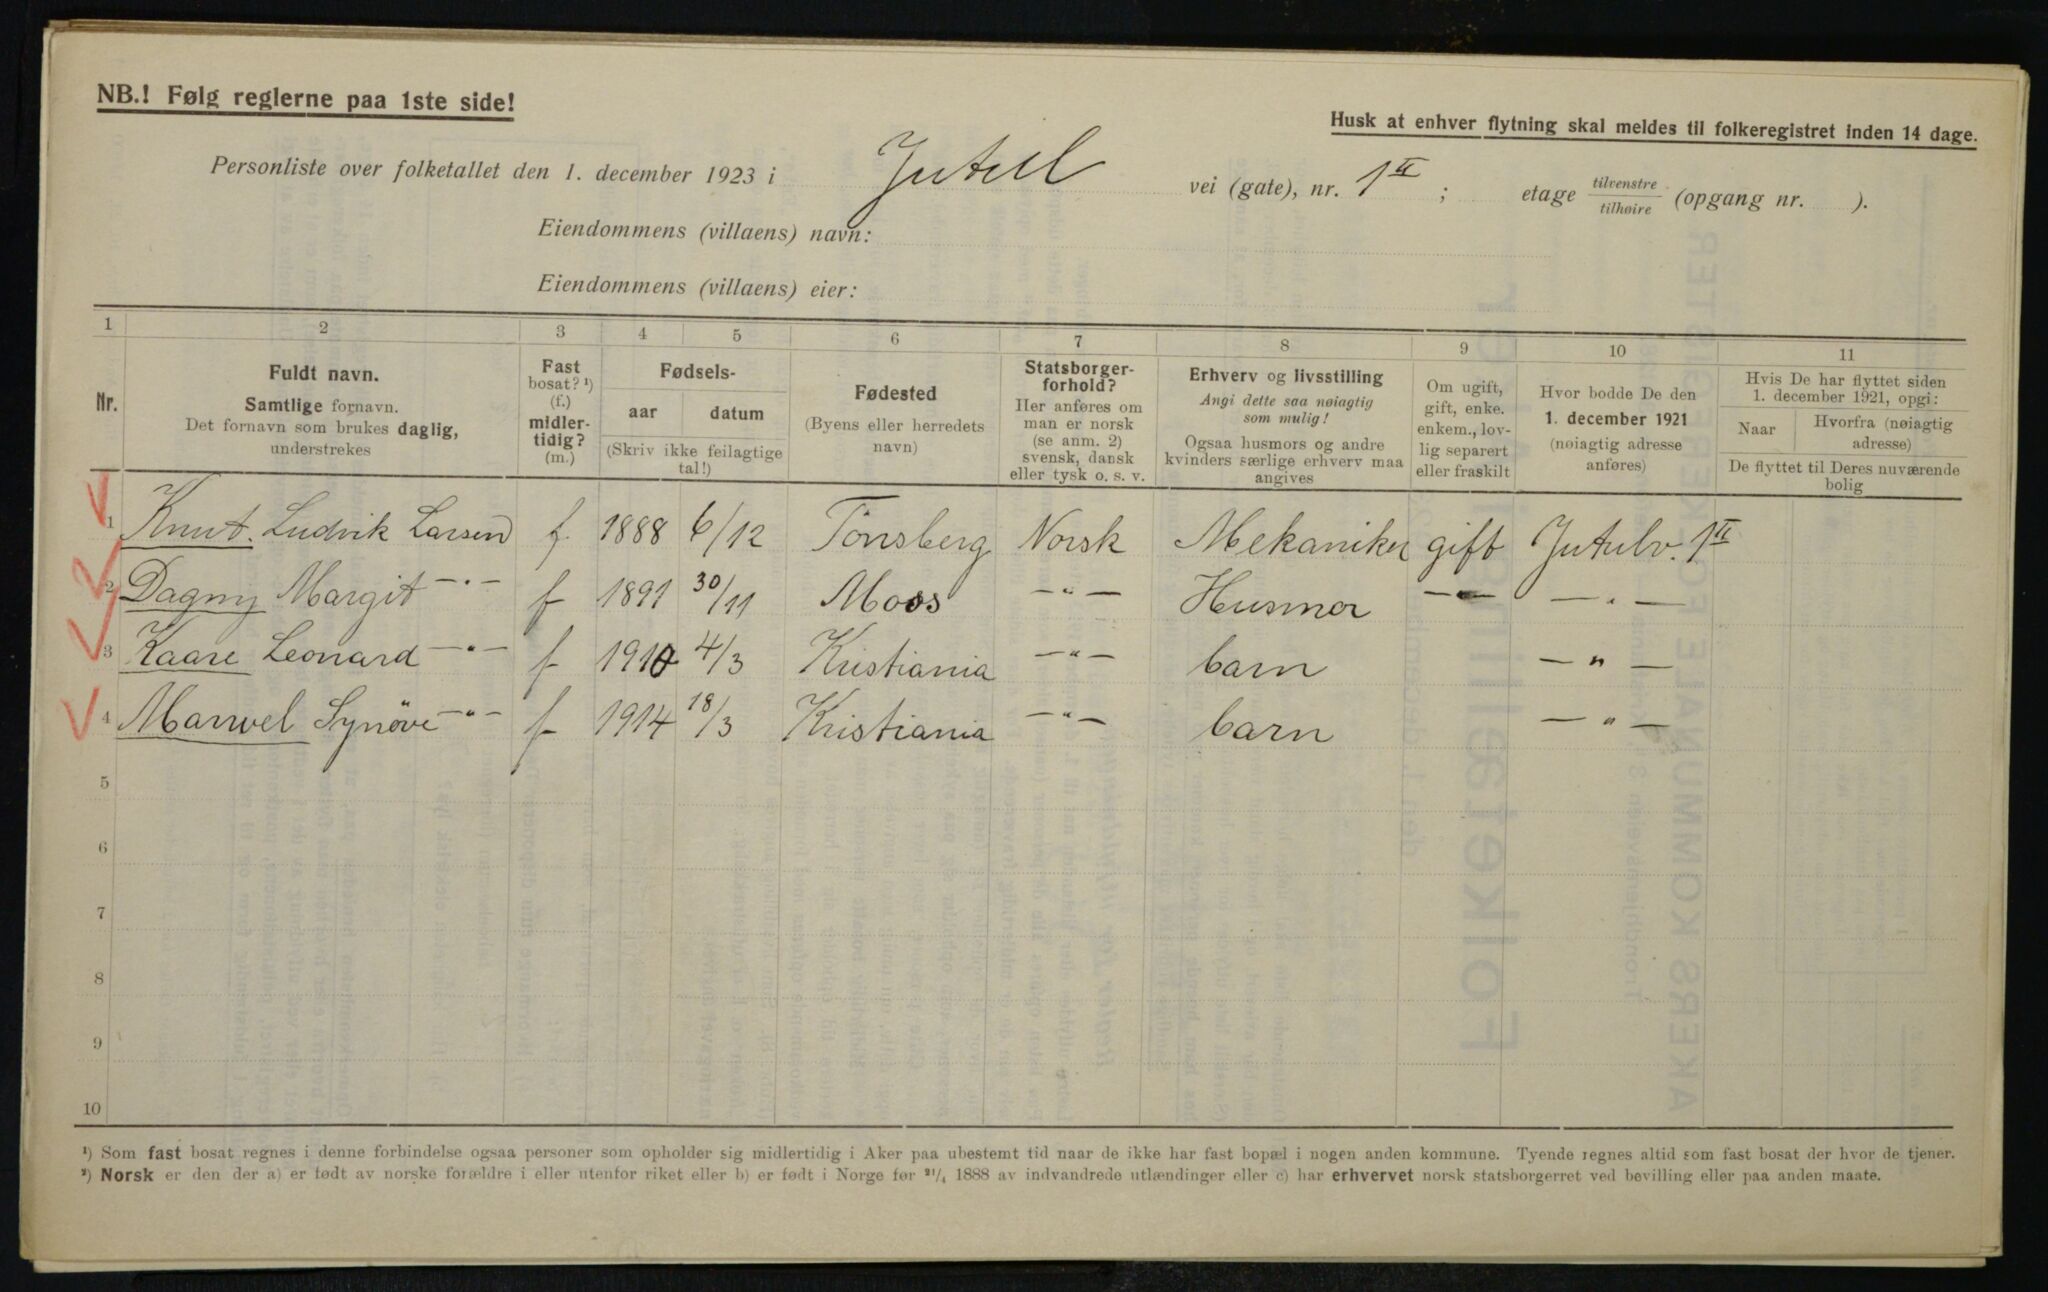 NB.! Følg reglerne paa 1ste side!
Husk at enhver flytning skal meldes til folkeregistret inden 14 dage.
Personliste over folketallet den 1. december 1923 i Jutul vei (gate), nr. 1 II ; etage tilvenstre/tilhøire (opgang nr. ).
Eiendommens (villaens) navn:
Eiendommens (villaens) eier:
1 2 3 4 5 6 7 8 9 10 11
Nr.
Fuldt navn.
Samtlige fornavn.
Det fornavn som brukes daglig,
understrekes
Fast
bosat? ¹)
(f.)
midler-
tidig?
(m.)
Fødsels-
aar datum
(Skriv ikke feilagtige
tal!)
Fødested
(Byens eller herredets
navn)
Statsborger-
forhold?
Her anføres om
man er norsk
(se anm. 2)
svensk, dansk
eller tysk o. s. v.
Erhverv og livsstilling
Angi dette saa nøiagtig
som mulig!
Ogsaa husmors og andre
kvinders særlige erhverv maa
angives
Om ugift,
gift, enke.
enkem., lov-
lig separert
eller fraskilt
Hvor bodde De den
1. december 1921
(nøiagtig adresse
anføres)
Hvis De har flyttet siden
1. december 1921, opgi:
Naar Hvorfra (nøiagtig
adresse)
De flyttet til Deres nuværende
bolig
1 Knut Ludvik Larsen f. 1888 6/12 Tønsberg Norsk Mekaniker gift Jutulv. 1 II
2 Dagny Margit —"— f 1891 30/11 Moss —"— Husmor —"— —"—
3 Kaare Leonard —"— f 1910 4/3 Kristiania —"— barn —"—
4 Marwel Synöve —"— f 1914 18/3 Kristiania —"— barn —"—
5
6
7
8
9
10
¹) Som fast bosat regnes i denne forbindelse ogsaa personer som opholder sig midlertidig i Aker paa ubestemt tid naar de ikke har fast bopæl i nogen anden kommune. Tyende regnes altid som fast bosat der hvor de tjener.
²) Norsk er den der a) er født av norske forældre i eller utenfor riket eller b) er født i Norge før 21/4 1888 av indvandrede utlændinger eller c) har erhvervet norsk statsborgerret ved bevilling eller paa anden maate.